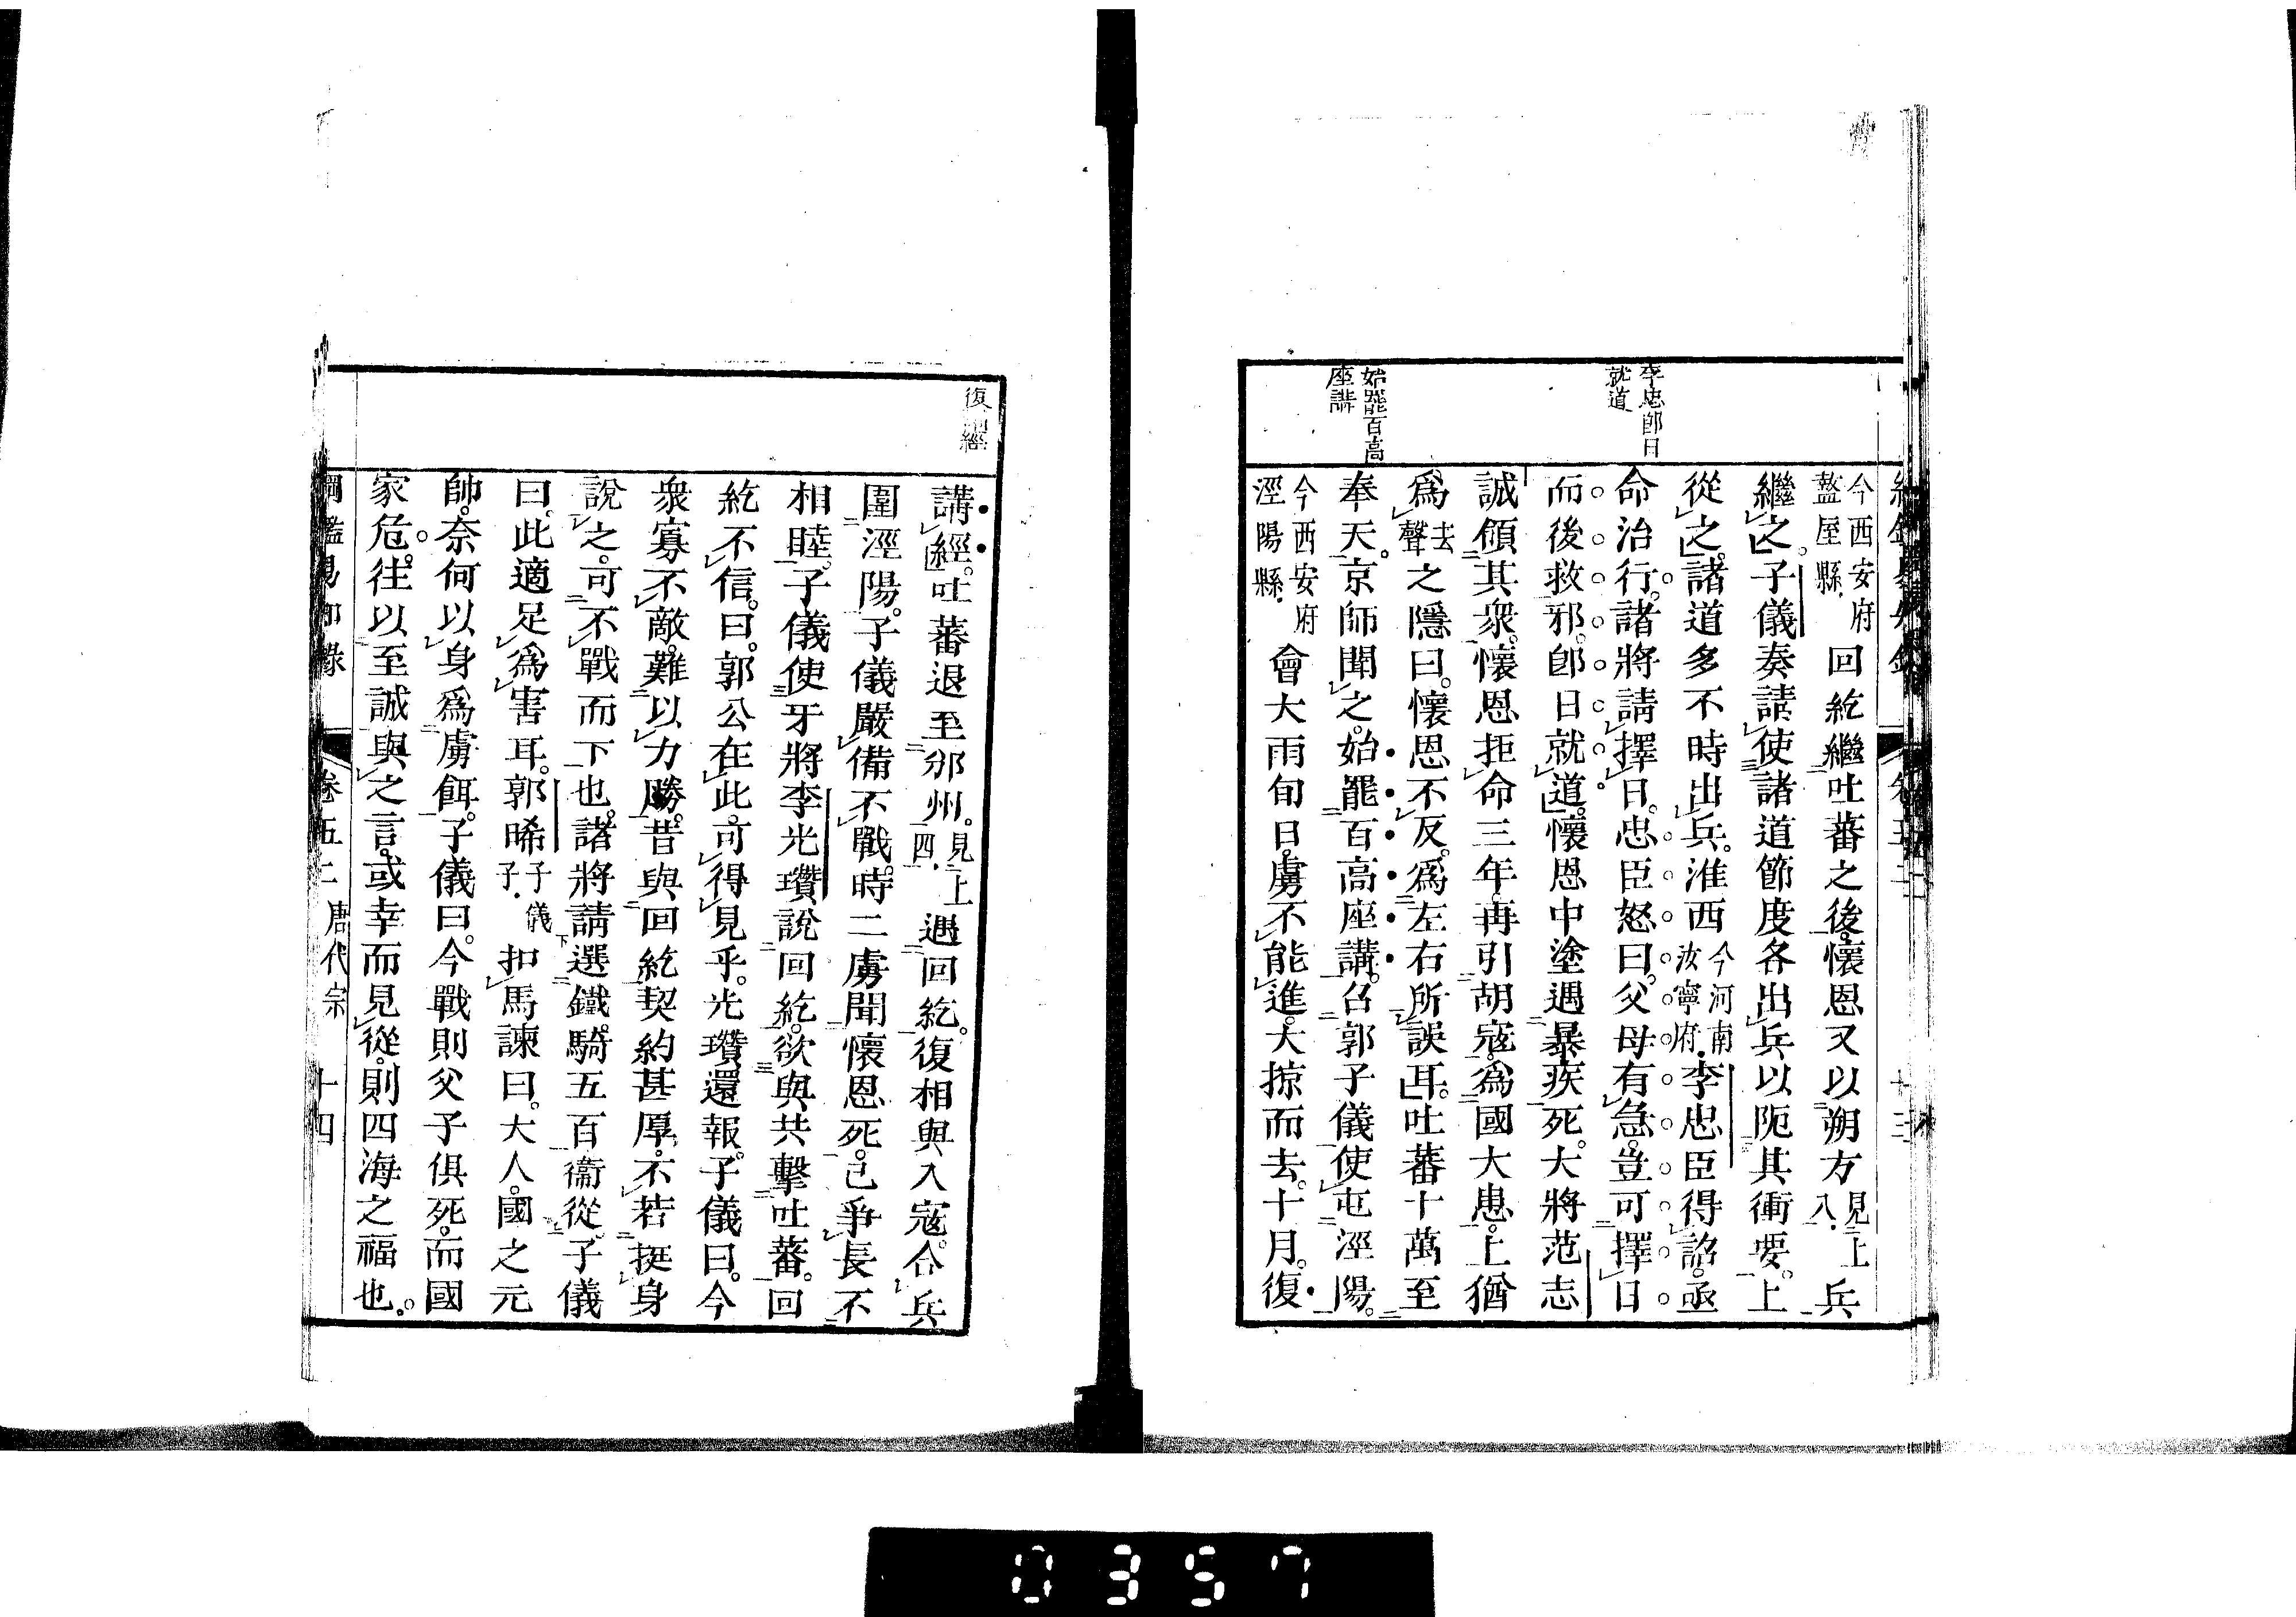 李忠卽日
就道
始罷百高
座講
今西安府
盩屋縣．
回紇繼吐蕃之後。懷恩又以朔方
見上
八．
兵
繼之。子儀奏請使諸道節度各出兵以阨其衝要。上
從之。諸道多不時出兵。淮西
今河南
汝寧府．
李忠臣得詔。亟
命治行。諸將請擇日。忠臣怒曰。父母有急。豈可擇日
而後救邪。卽日就道。懷恩中塗遇暴疾死。大將范志
誠領其衆。懷恩拒命三年。再引胡寇。爲國大患。上猶
爲
去
聲
之隱曰。懷恩不反。爲左右所誤耳。吐蕃十萬至
奉天。京師聞之。始罷百高座講。召郭子儀使屯涇陽。
今西安府
涇陽縣．
會大雨旬日。虜不能進。大掠而去。十月。復
復
經
講經。吐蕃退至邠州。
見上
四．
遇回紇。復相與入寇。合兵
圍涇陽。子儀嚴備不戰。時二虜聞懷恩死。已爭長不
相睦。子儀使牙將李光瓚說回紇。欲與共擊吐蕃。回
紇不信。曰。郭公在此。可得見乎。光瓚還報。子儀曰。今
衆寡不敵。難以力勝。昔與回紇契約甚厚。不若挺身
說之。可不戰而下也。諸將請選鐵騎五百衞從。子儀
曰。此適足爲害耳。郭晞
子儀
子．
扣馬諫曰。大人。國之元
帥。奈何以身爲虜餌。子儀曰。今戰則父子俱死。而國
家危。往以至誠與之言。或幸而見從。則四海之福也。
綱鑑易知錄　卷五二　唐代宗　十四
0357